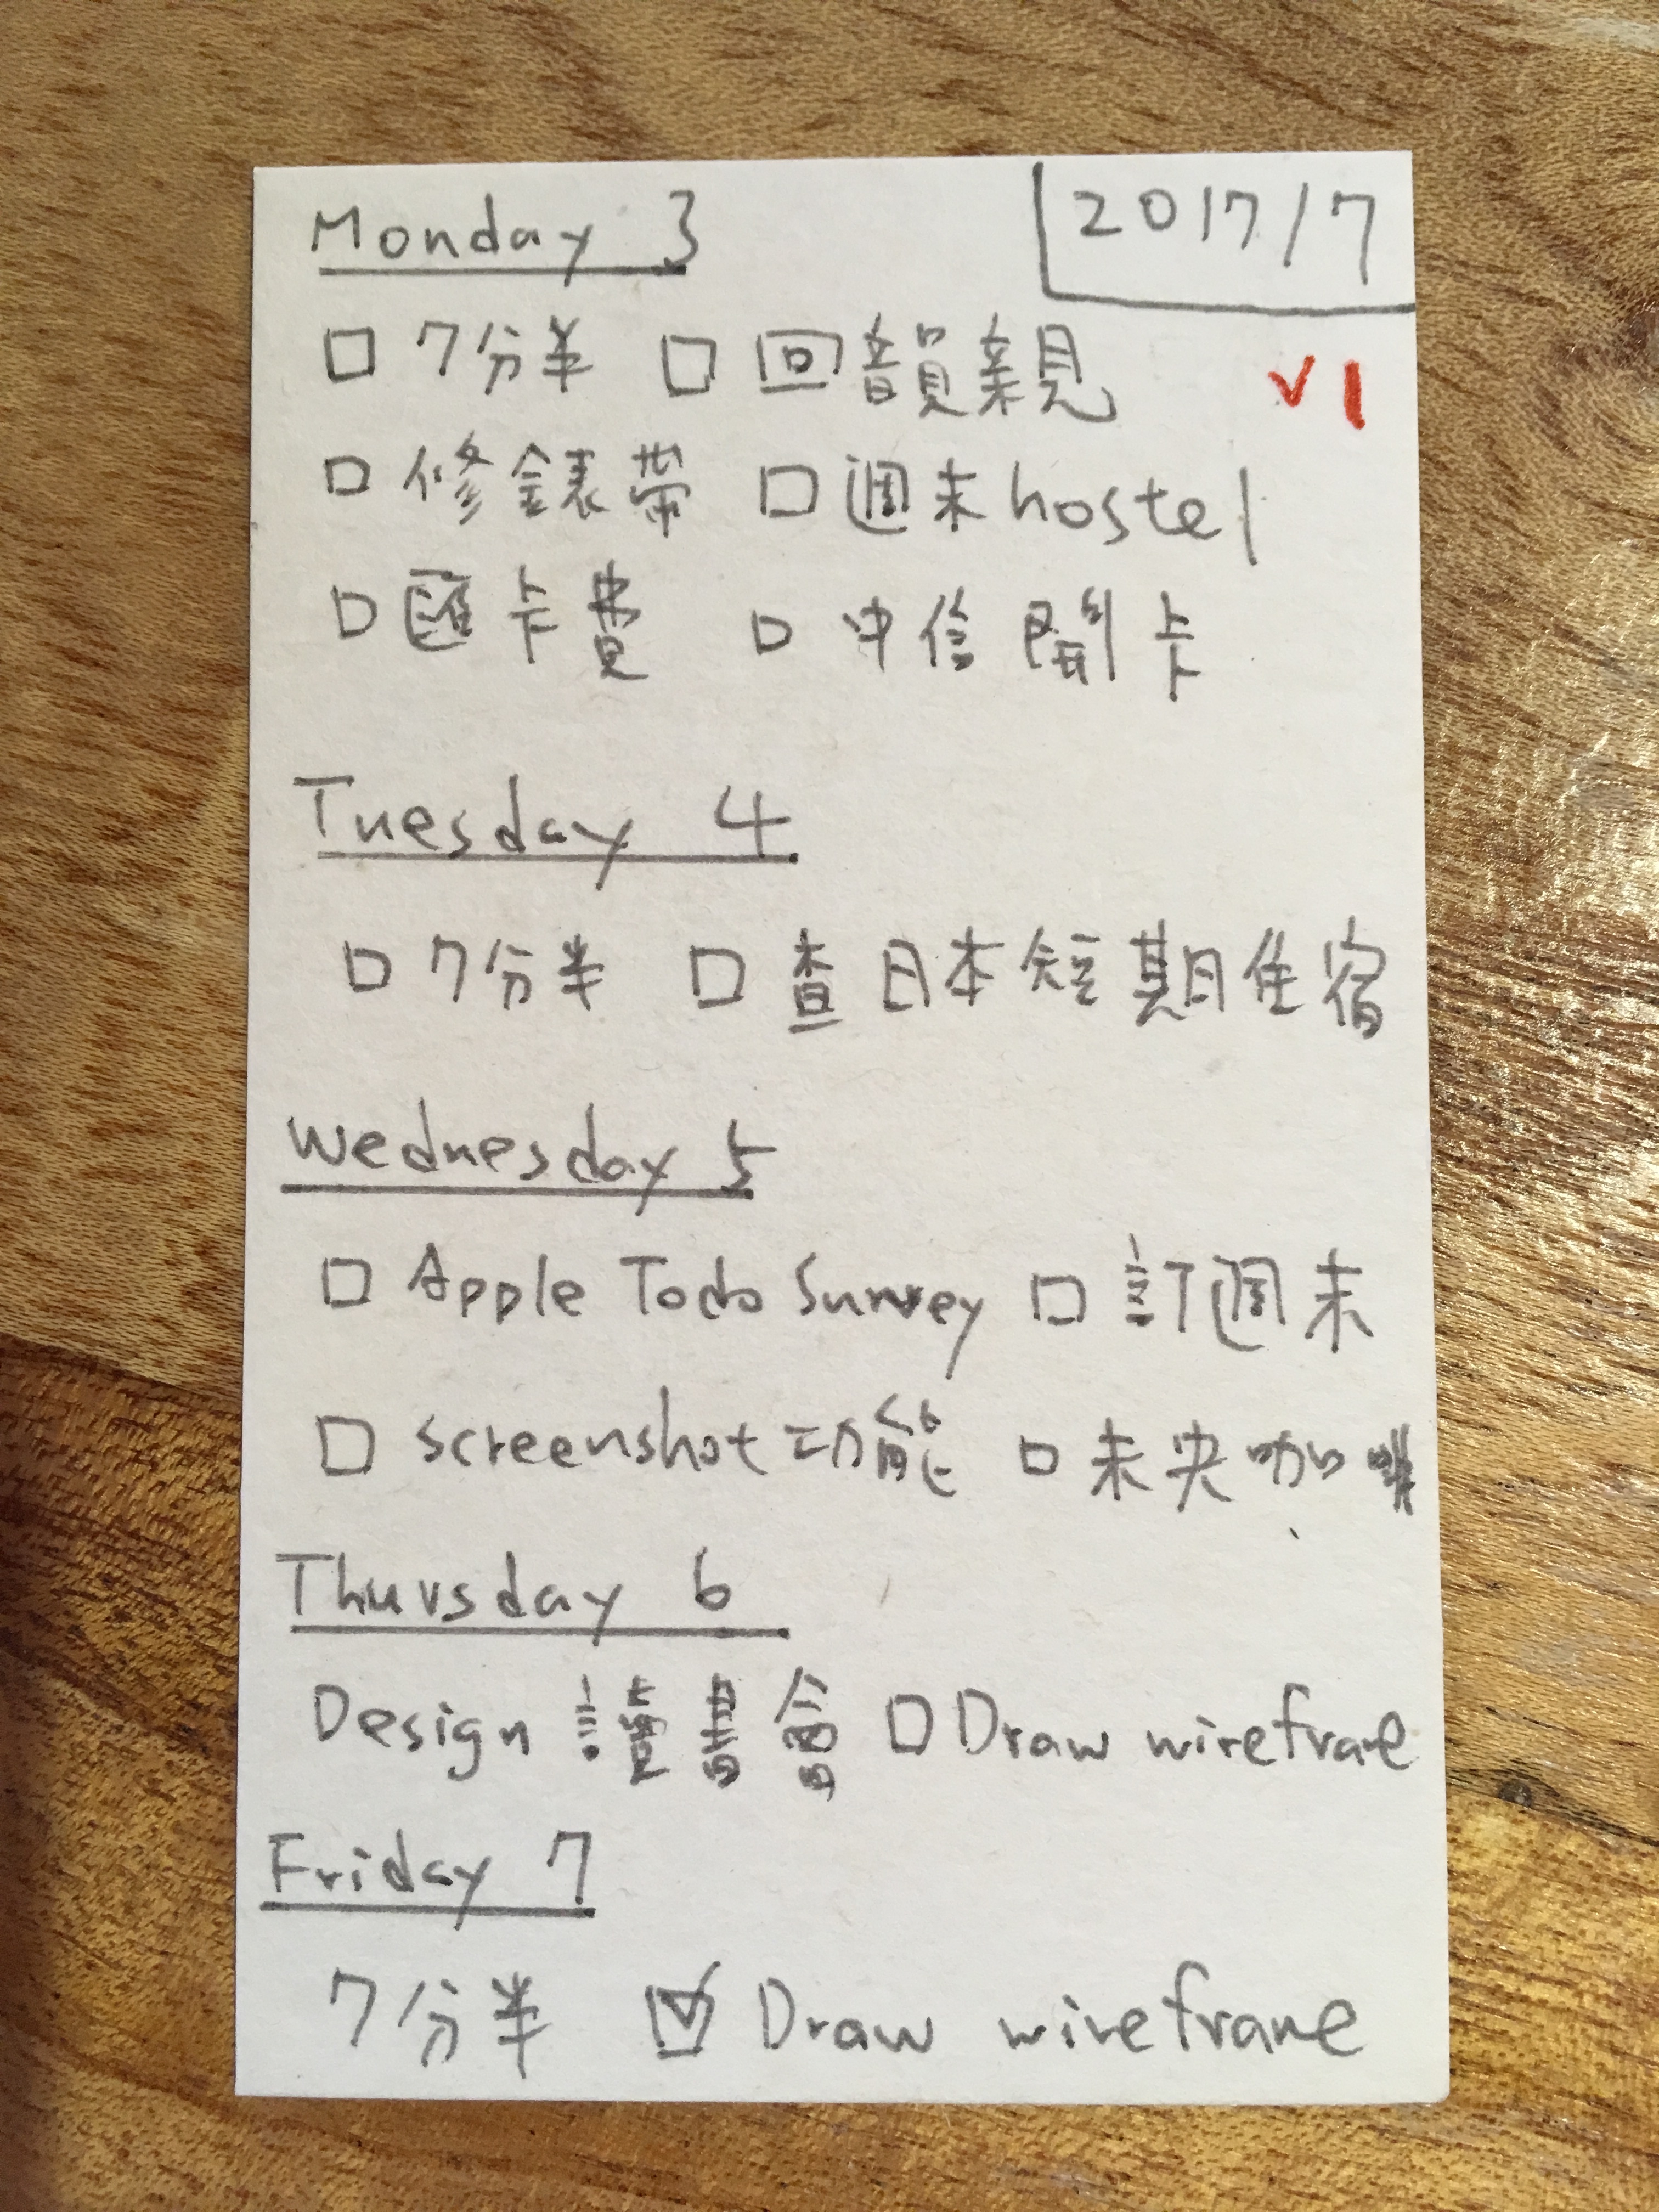 Monday 3 2017/7
□ 7分半 □ 回韻親
v1
□ 修錶帶 □ 週末hostel
□ 匯卡費 □ 中信開卡
Tuesday 4
□ 7分半 □ 查日本短期住宿
Wednesday 5
□ Apple Todo Survey □ 訂週末
□ screenshot功能 □ 未央咖啡
Thursday 6
Design 讀書會 □ Draw wirefrae
Friday 7
7分半 ☑ Draw wireframe